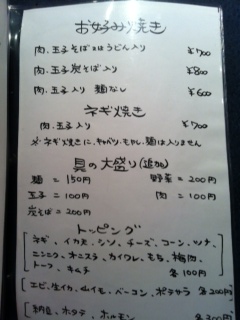 お好み焼き
肉.玉子そば又はうどん入り ¥700
肉.玉子炭そば入り ¥800
肉.玉子入り 麺なし ¥600
ネギ焼き
肉.玉子入り ¥700
※ネギ焼きに、キャベツ、モヤシ、麺は入りません
具の大盛り(追加)
麺=150円 野菜=200円
玉子=100円 肉=100円
炭そば=200円
トッピング
ネギ、イカ天、シソ、チーズ、コーン、ツナ、
ニンニク、オニスラ、カイワレ、もち、梅肉、
トーフ、キムチ 各100円
エビ、生イカ、山イモ、ベーコン、ポテサラ 各200円
納豆、ホタテ、ホルモン 各300円